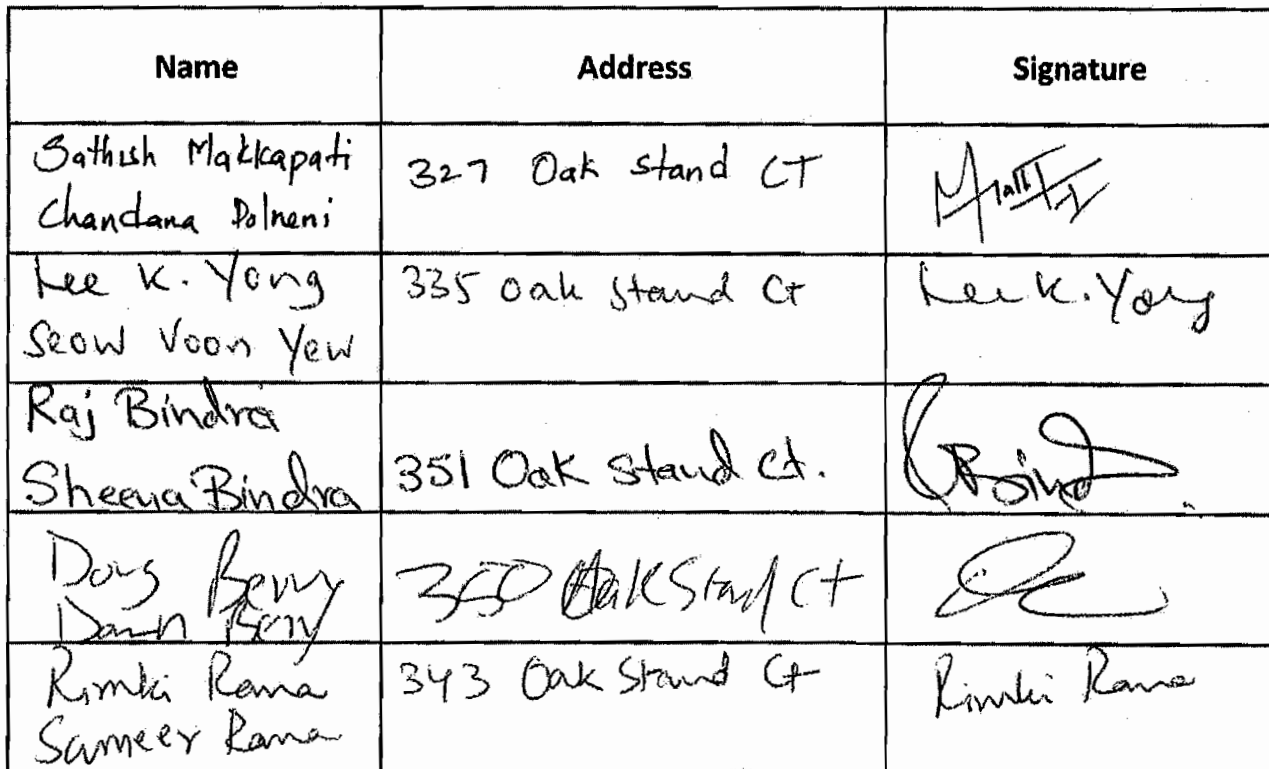 Name Address Signature
Sathish Makkapati
Chandana Polneni
327 Oak Stand CT
Lee K. Yong
Seow Voon Yew
335 Oak Stand Ct
Lee K. Yong
Raj Bindra
Sheena Bindra
351 Oak Stand Ct.
Doug Berry
Dawn Berry
Oak Stand Ct
Rimki Rana
Sameer Rana
343 Oak Stand Ct
Rimki Rana